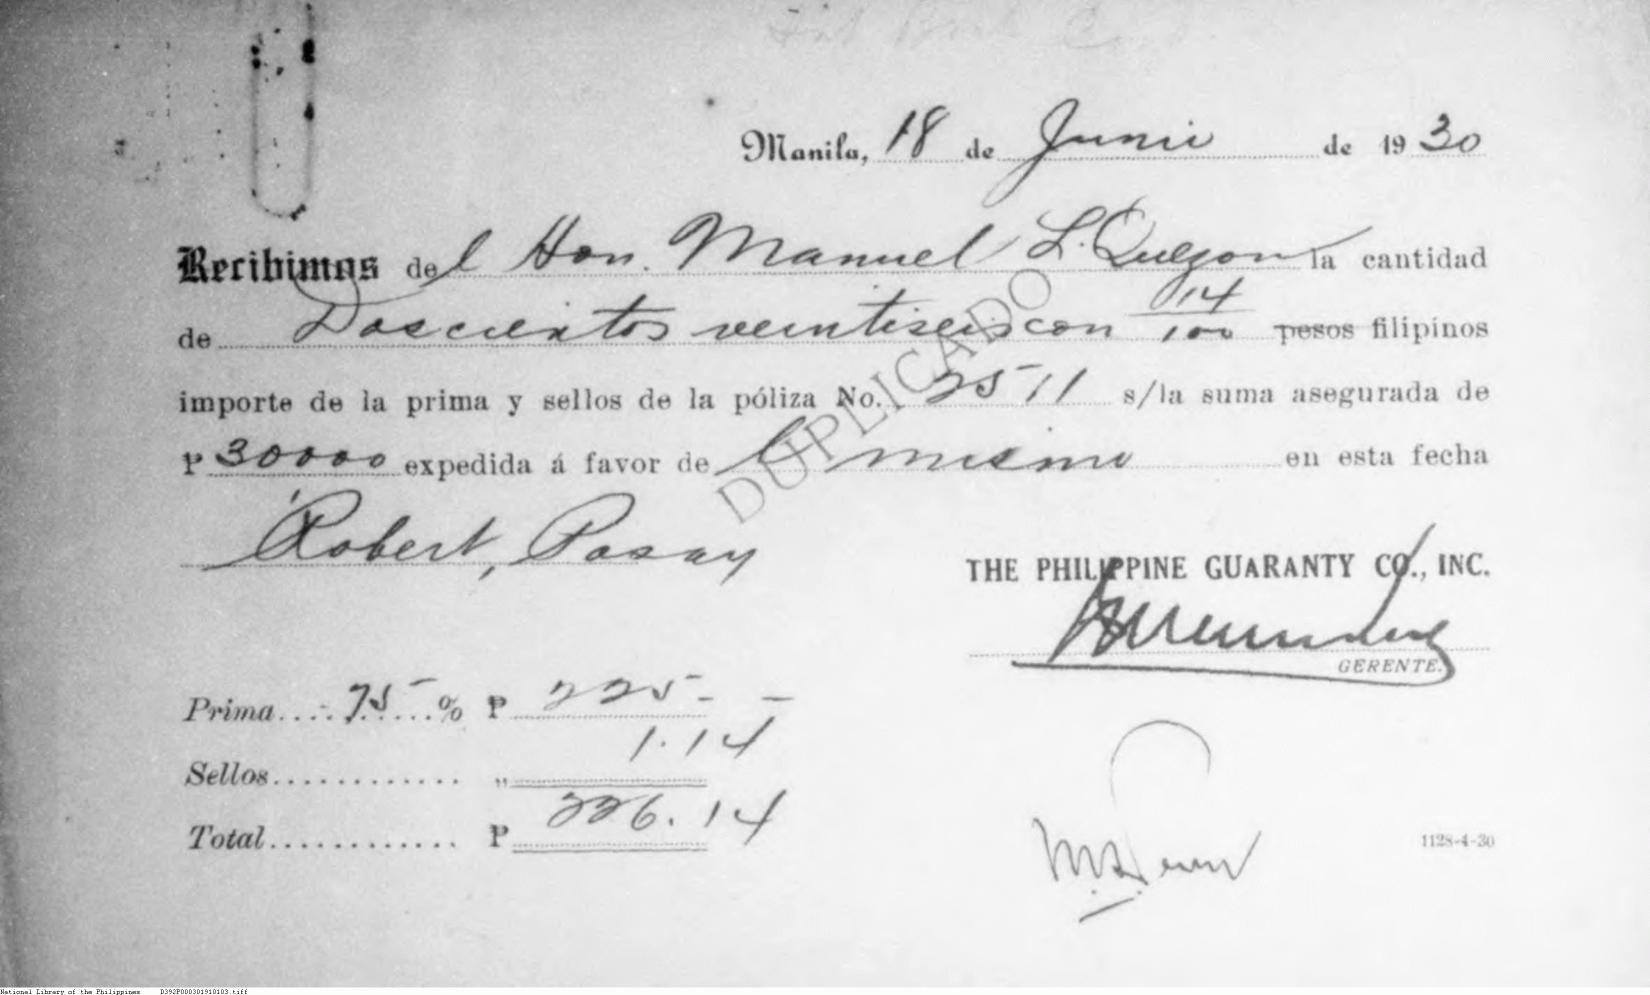 Manila, 18 de Junio de 1930
Recibimos del Hon. Manuel L. Quezon la cantidad
de Doscientos veintiseis con 14/100 pesos filipinos
importe de la prima y sellos de la póliza No. 2511 s/la suma asegurada de
₱ 30000 expedida á favor de el mismo en esta fecha
DUPLICADO
Robert, Pasay
THE PHILIPPINE GUARANTY CO., INC.
GERENTE.
Prima.... 75 % ₱ 225 - -
Sellos............ „ 1.14
Total............ ₱ 226.14
1128-4-30
National Library of the Philippines D392P000301910103.tiff